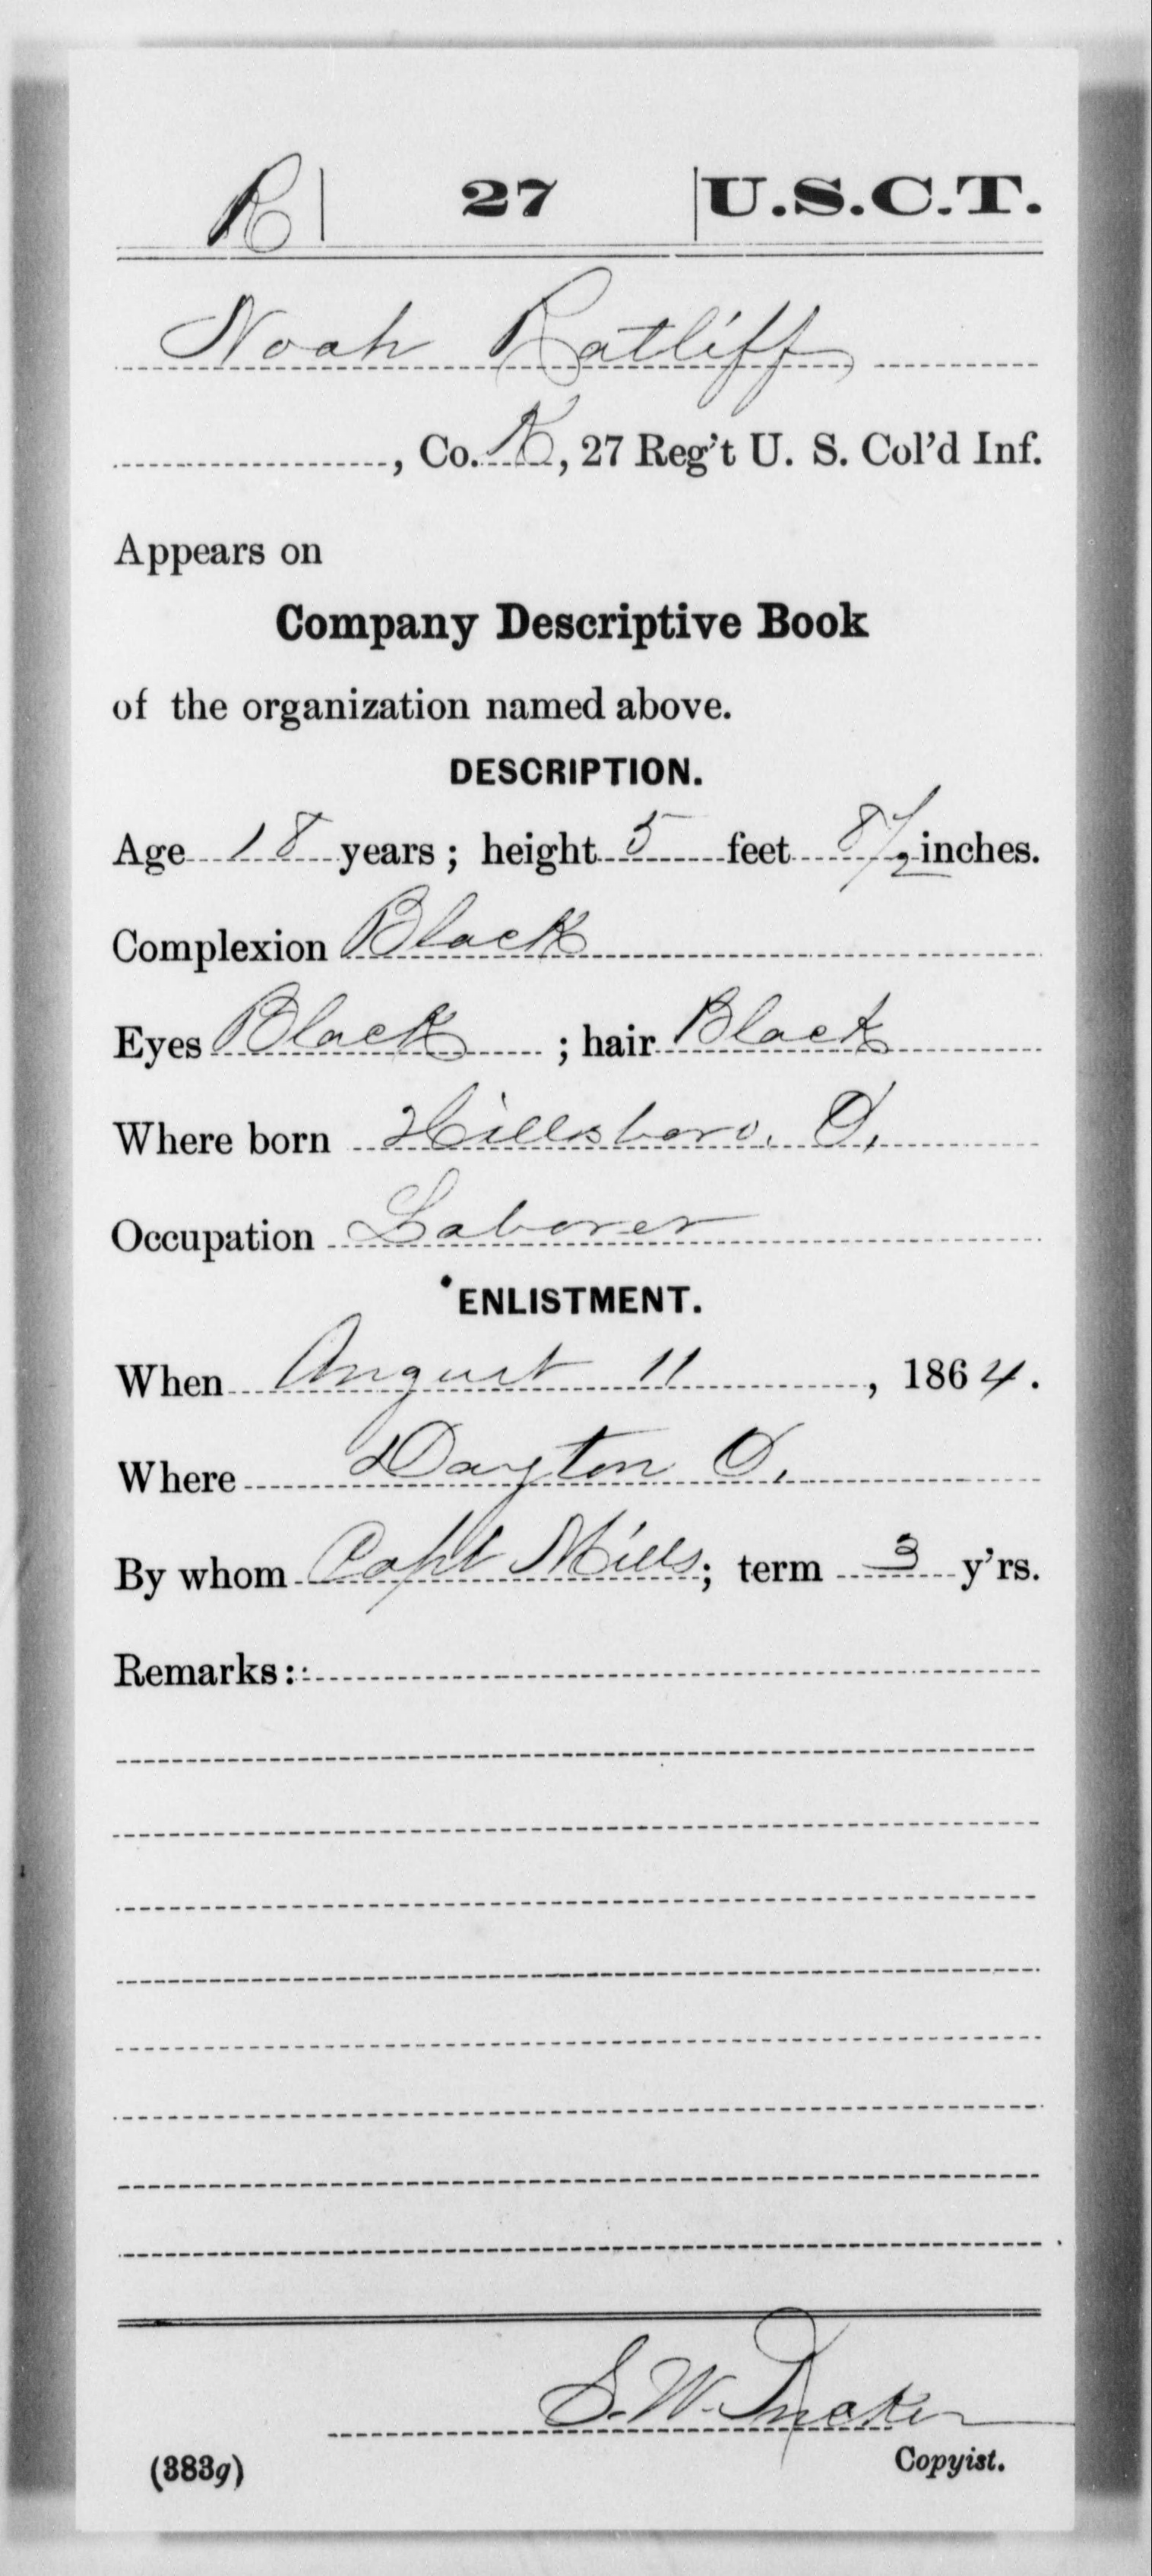 R 27 U.S.C.T.
Noah Ratliff
, Co. K, 27 Reg't U. S. Col'd Inf.
Appears on
Company Descriptive Book
of the organization named above.
DESCRIPTION.
Age 18 years; height 5 feet 8 1/2 inches.
Complexion Black
Eyes Black ; hair Black
Where born Hillsboro, O,
Occupation Laborer
ENLISTMENT.
When August 11, 1864.
Where Dayton O,
By whom Capt Mills; term 3 y'rs.
Remarks:
S. W. Tucker
Copyist.
(383g)